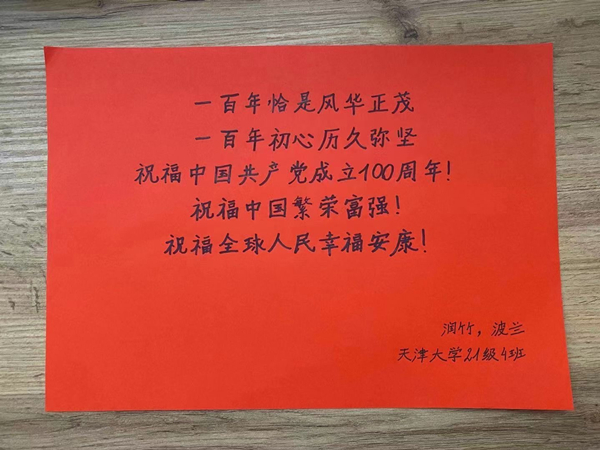 一百年恰是风华正茂
一百年初心历久弥坚
祝福中国共产党成立100周年!
祝福中国繁荣富强!
祝福全球人民幸福安康!
润竹，波兰
天津大学21级4班